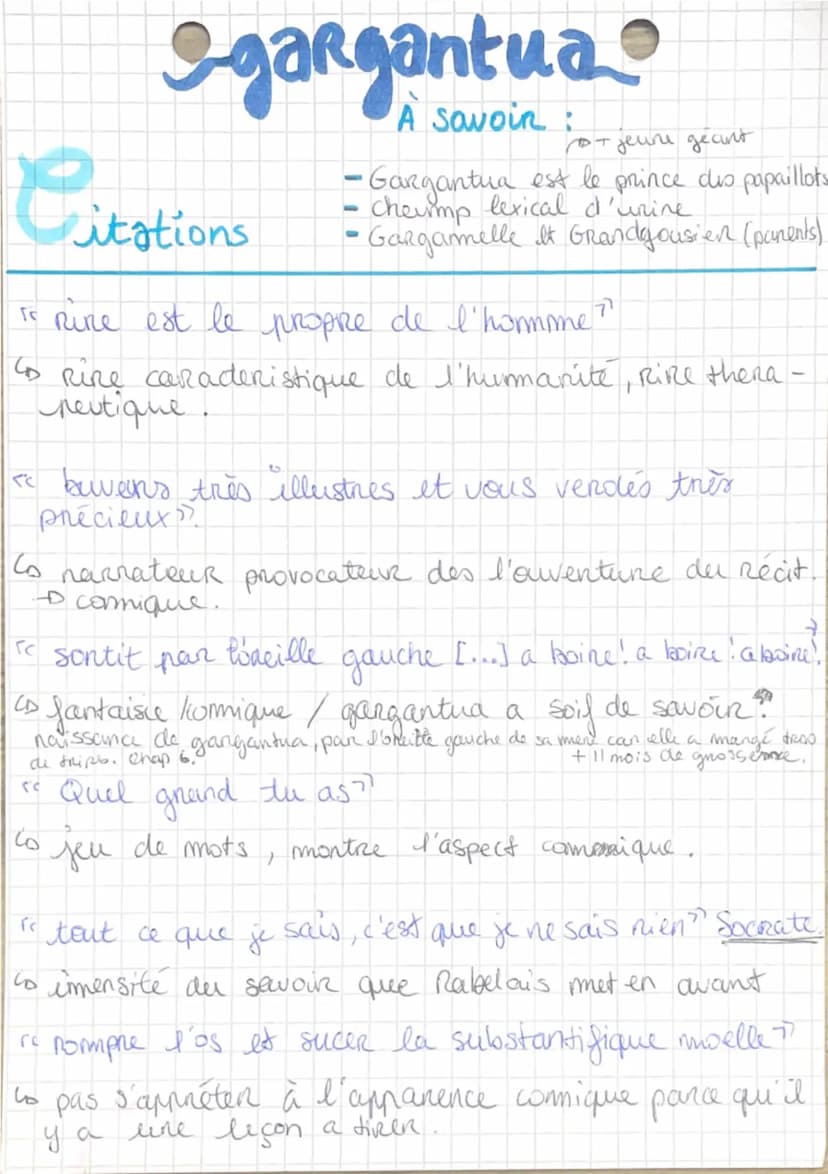 gargantua
À savoir :
→ + jeune géant
Citations
- Gargantua est le prince des papaillots
- champ lexical d'urine
- Gargamelle et Grandgousier (parents)
" rire est le propre de l'homme "
↳ rire caracteristique de l'humanité, rire thera-
peutique.
" buveurs très illustres et vous verolés très
précieux ".
↳ narrateur provocateur des l'ouverture du récit.
→ comique.
" sortit par l'oreille gauche [...] a boire! a boire! a boire! "
↳ fantaisie / comique / gargantua a soif de savoir.
naissance de gargantua, par l'oreille gauche de sa mere car elle a mangé trop
de tripes. Chap 6. + 11 mois de grossesse.
" Quel grand tu as "
↳ jeu de mots, montre l'aspect comique.
" tout ce que je sais, c'est que je ne sais rien " Socrate.
↳ imensité du savoir que Rabelais met en avant
" rompre l'os et sucer la substantifique moelle "
↳ pas s'apprêter à l'apparence comique parce qu'il
y a une leçon a tirer.